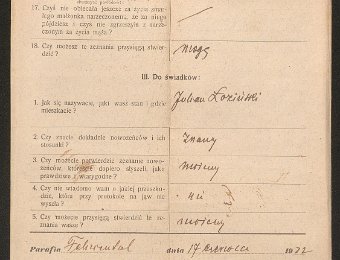 17. Czyś nie obiecała jeszcze za życia swe-
go małżonka narzeczonemu, że za niego
pójdziesz i czyś nie zgrzeszyła z narze-
czonym za życia męża?
18. Czy możesz te zeznania przysięgą stwier-
dzić? mogę
III. Do świadków:
1. Jak się nazywacie, jaki wasz stan i gdzie
mieszkacie? Juljan Łoziński
2. Czy znacie dokładnie nowożeńców i ich
stosunki? Znamy
3. Czy możecie potwierdzić zeznanie nowo-
żeńców, któreście dopiero słyszeli, jako
prawdziwe i wiarygodne? możemy
4. Czy nie wiadomo wam o jakiej przeszko-
dzie, która przy protokole na jaw nie
wyszła? nie
5. Czy możecie przysięgą stwierdzić te ze-
znania wasze? możemy
Parafia dnia 17 czerwca 1932